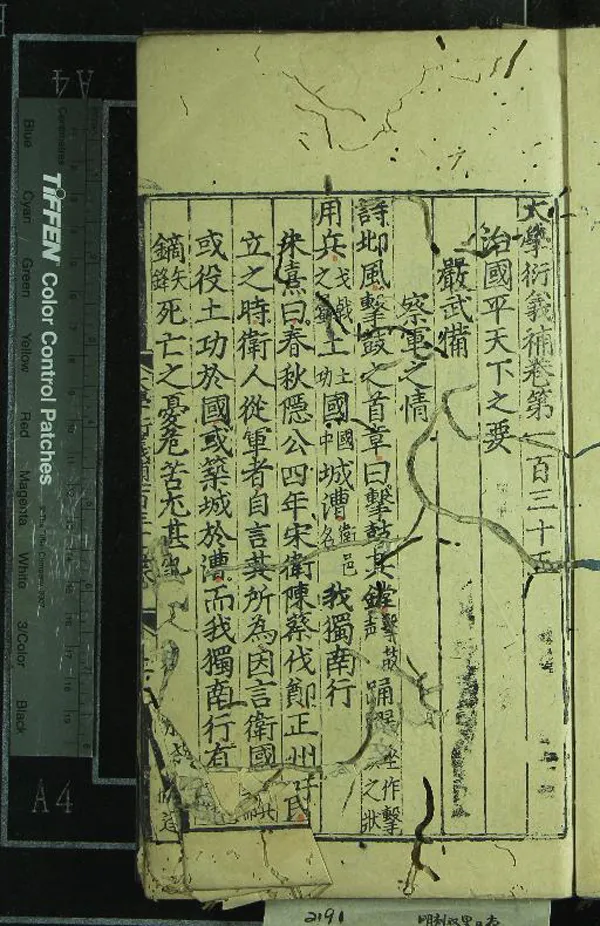 大學衍義補卷第一百三十五
治國平天下之要
嚴武備
察軍之情
詩邶風擊鼓之首章曰擊鼓其鏜擊鼓聲踊躍坐作擊之狀
用兵戈戟之土土功國國中城漕衛邑名我獨南行
朱熹曰春秋隱公四年宋衛陳蔡伐鄭正州
立之時衛人從軍者自言其所為因言衛國
或役土功於國或築城於漕而我獨南行有
鏑矢鋒死亡之憂危苦尤甚
TIFFEN Color Control Patches
Blue
Cyan
Green
Yellow
Red
Magenta
White
3/Color
Black
Centimetres
A4
A4
2191